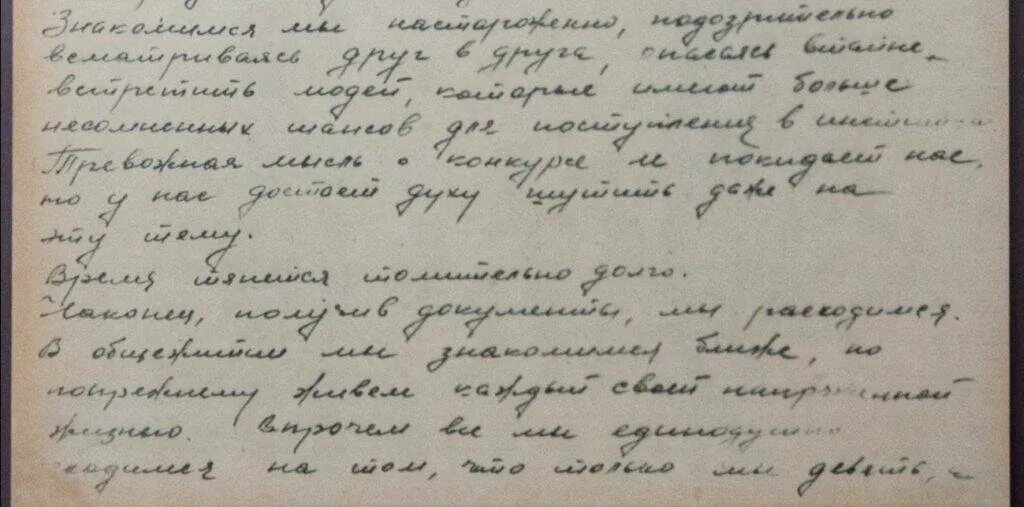 Знакомимся мы настороженно, подозрительно
всматриваясь друг в друга, опасаясь втайне
встретить людей, которые имеют больше
несомненных шансов для поступления в институт.
Тревожная мысль о конкурсе не покидает нас,
но у нас достает духу шутить даже на
эту тему.
Время тянется томительно долго.
Наконец, получив документы, мы расходимся.
В общежитии мы знакомимся ближе, но
попрежнему живем каждый своей напряженной
жизнью. Впрочем все мы единодушно
сходимся на том, что только мы девять,